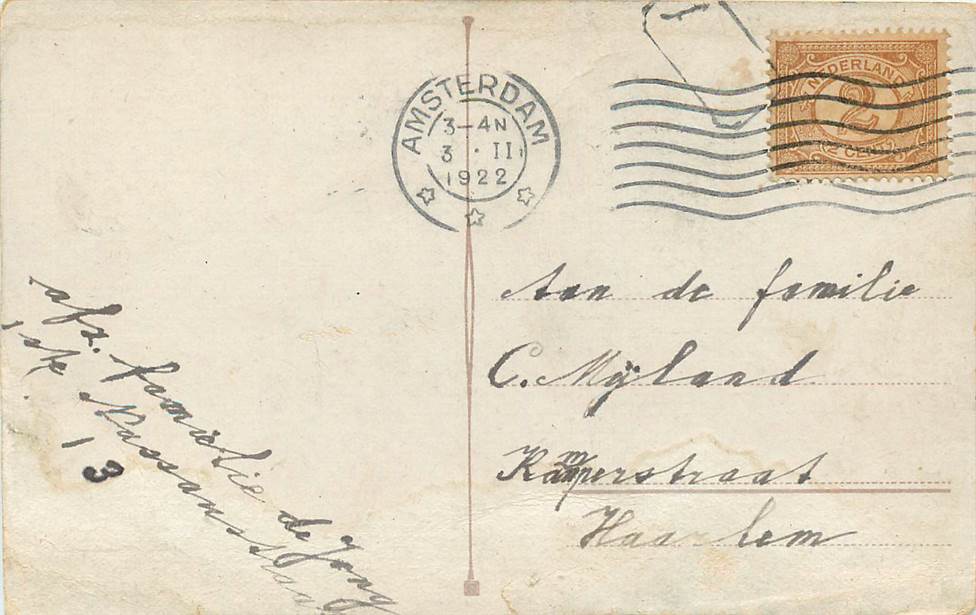 AMSTERDAM
3-4N
3 · II
1922
NEDERLAND
2
CENT
Aan de familie
C. Mijland
Kamperstraat
Haarlem
afz. familie de Jong
1ste Nassaustraat
13